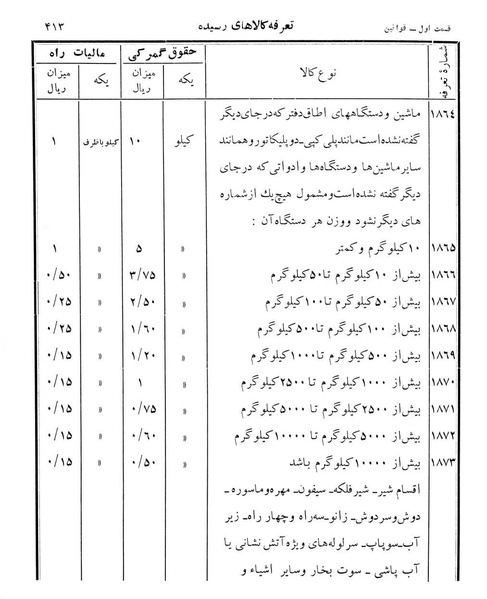 قسمت اول ــ قوانین تعرفه کالاهای رسیده ۴۱۳
شمارهٔ تعرفه نوع کالا حقوق گمرکی مالیات راه
یکه میزان ریال یکه میزان ریال
۱۸۶۴ ماشین و دستگاههای اطاق دفتر که در جای دیگر
گفته نشده است مانند پلی کپی ــ دوپلیکاتور و همانند کیلو ۱۰ کیلو با ظرف ۱
سایر ماشین‌ها و دستگاه‌ها و ادواتی که در جای
دیگر گفته نشده است و مشمول هیچ یك از شماره
های دیگر نشود و وزن هر دستگاه آن :
۱۸۶۵ ۱۰ کیلو گرم و کمتر » ۵ » ۱
۱۸۶۶ بیش از ۱۰ کیلو گرم تا ۵۰ کیلو گرم » ۳/۷۵ » ۰/۵۰
۱۸۶۷ بیش از ۵۰ کیلو گرم تا ۱۰۰ کیلو گرم » ۲/۵۰ » ۰/۲۵
۱۸۶۸ بیش از ۱۰۰ کیلو گرم تا ۵۰۰ کیلو گرم » ۱/۶۰ » ۰/۲۵
۱۸۶۹ بیش از ۵۰۰ کیلو گرم تا ۱۰۰۰ کیلو گرم » ۱/۲۰ » ۰/۱۵
۱۸۷۰ بیش از ۱۰۰۰ کیلو گرم تا ۲۵۰۰ کیلو گرم » ۱ » ۰/۱۵
۱۸۷۱ بیش از ۲۵۰۰ کیلو گرم تا ۵۰۰۰ کیلو گرم » ۰/۷۵ » ۰/۱۵
۱۸۷۲ بیش از ۵۰۰۰ کیلو گرم تا ۱۰۰۰۰ کیلو گرم » ۰/۶۰ » ۰/۱۵
۱۸۷۳ بیش از ۱۰۰۰۰ کیلو گرم باشد » ۰/۵۰ » ۰/۱۵
اقسام شیر ــ شیر فلکه ــ سیفون ــ مهره و ماسوره ــ
دوش و سردوش ــ زانو ــ سه راه و چهار راه ــ زیر
آب ــ سوپاپ ــ سر لوله‌های ویژه آتش نشانی یا
آب پاشی ــ سوت بخار و سایر اشیاء و